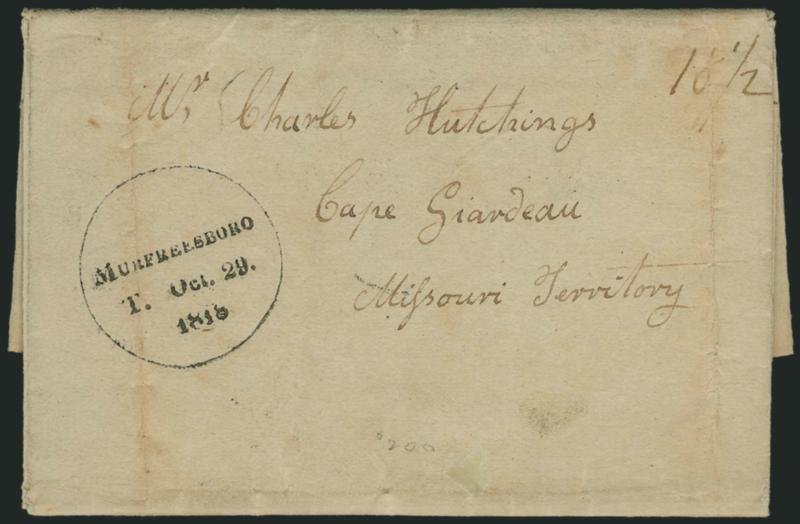 18 1/2
Mr Charles Hutchings
Cape Giardeau
Missouri Territory
MURFREESBORO
T. Oct. 29.
1818
200